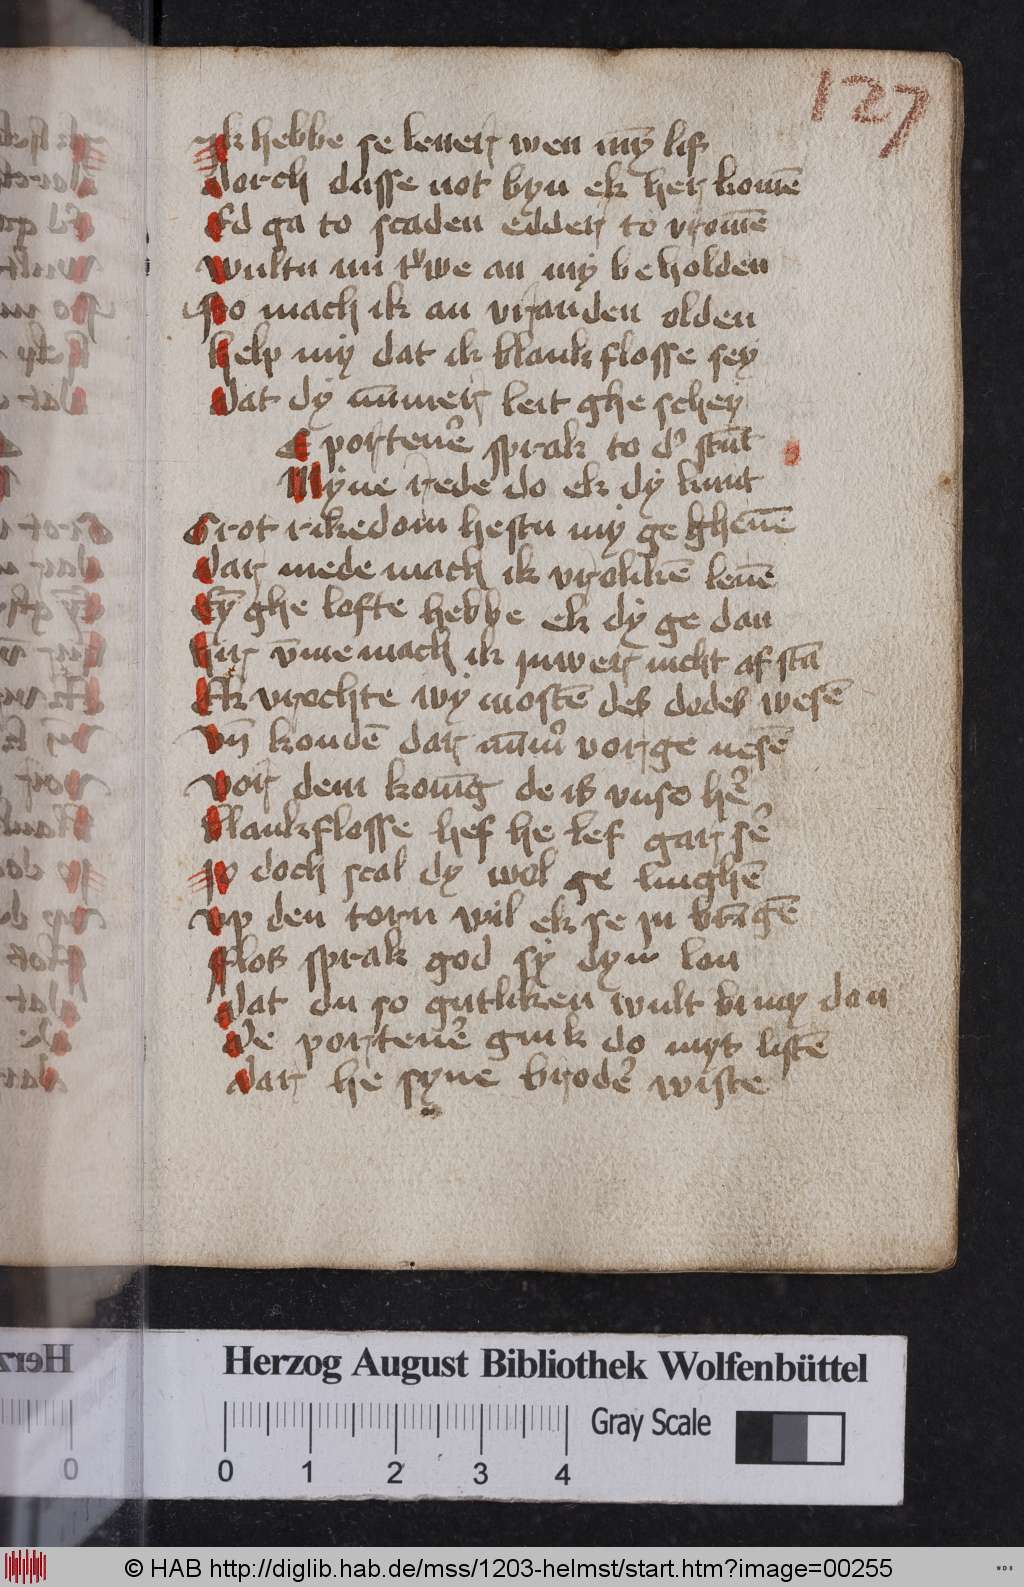 127
Ik hebbe se leuer wen mȳ lif
dorch dusse not byn ek her komē
Id ga to scaden edder to vromē
wultu mi trwe an my beholden
So mach ik an vrauden olden
help my dat ik blankflosse sey
dat dy nūmer leit ghe schey
De portener sprak to der stūt
Myne rede do ek dy kunt
Grot rikedom hestu my ge gheuē
dar mede mach ik vroliken leuē
Ey ghe lofte hebbe ek dy ge dan
hir vme mach ik juwer nicht af stā
Ik vrochte wy mostē des dodes wesē
vn̄ kondē dar nūmer vor ge nesē
vor dem konīg de is vnse her
blankflosse hef he lef gar ser
jo doch scal dy wol ge linghē
vp den torn wil ek se in brīgē
flos sprak god sy dyn lon
dat du so gutliken wult bi my don
de portener gink do myt listē
dar he syne broder wiste
Herzog August Bibliothek Wolfenbüttel
0 1 2 3 4 Gray Scale
© HAB http://diglib.hab.de/mss/1203-helmst/start.htm?image=00255